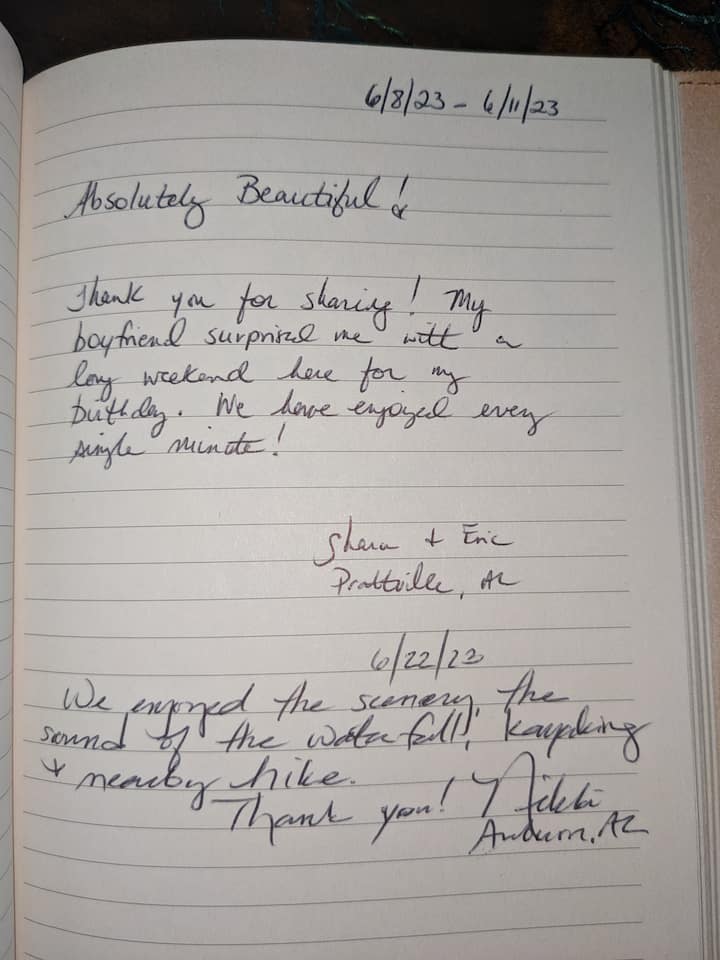 6/8/23 - 6/11/23
Absolutely Beautiful!
Thank you for sharing! My
boyfriend surprised me with a
long weekend here for my
birthday. We have enjoyed every
single minute!
Shara + Eric
Prattville, AL
6/22/23
We enjoyed the scenery, the
sound of the waterfall, kayaking
+ nearby hike.
Thank you! Nikki
Auburn, AL